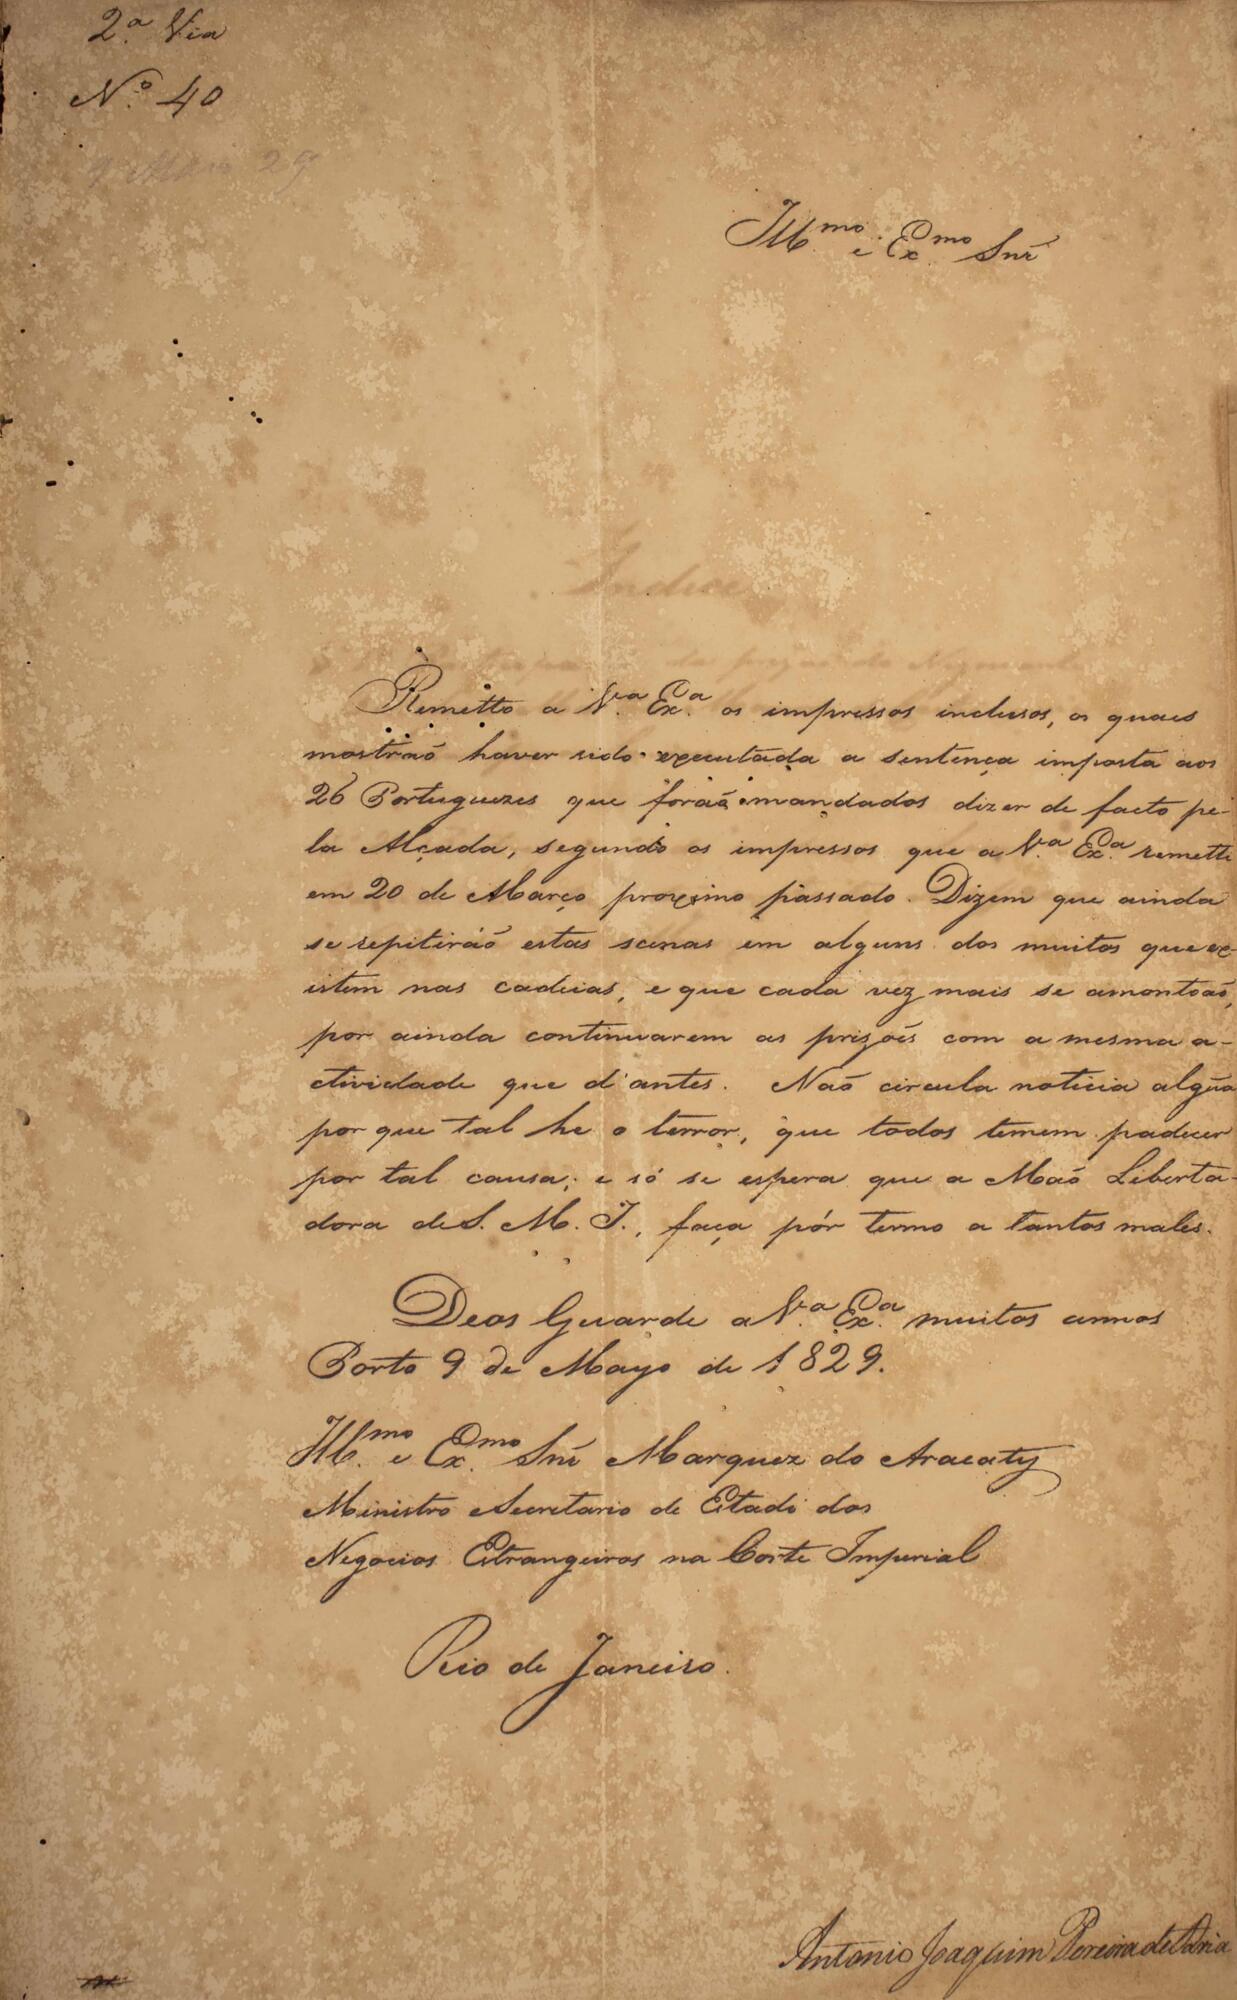 2.ª Via
N.º 40
9 Maio 29
Ill.mo e Ex.mo Snr̃
Indice
Remetto a V.ª Ex.ª os impressos inclusos, os quaes
mostraõ haver sido executada a sentença imposta aos
26 Portuguezes que foraõ mandados dizer de facto pe-
la Alçada, segundo os impressos que a V.ª Ex.ª remetti
em 20 de Março proximo passado. Dizem que ainda
se repitiráõ estas scenas em alguns dos muitos que ex-
istem nas cadeias, e que cada vez mais se amontoaõ,
por ainda continuarem as prizoẽs com a mesma a-
ctividade que d'antes. Naõ circula noticia algũa
por que tal he o terror, que todos temem padecer
por tal causa; e só se espera que a Maõ Liberta-
dora de S. M. I., faça pôr termo a tantos males.
Deos Guarde a V.ª Ex.ª muitos annos
Porto 9 de Mayo de 1829.
Ill.mo e Ex.mo Snr̃ Marquez do Aracaty
Ministro e Secretario de Estado dos
Negocios Estrangeiros na Corte Imperial
Rio de Janeiro.
Antonio Joaquim Pereira de Faria